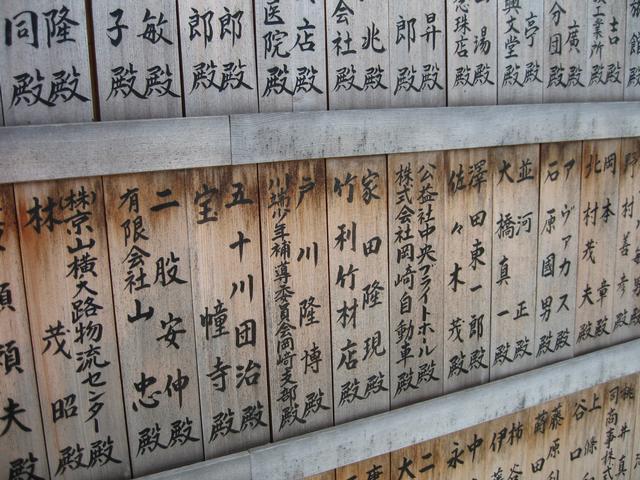 廣殿
分団殿
亭殿
興文堂殿
湯殿
珠店殿
昇殿
郎殿
兆殿
会社殿
店殿
医院殿
郎殿
郎殿
敏殿
子殿
隆殿
同殿
村善彦殿
岡本章殿
北村茂夫殿
アヴァカス殿
石原國男殿
並河正殿
大橋真一殿
澤田東一郎殿
佐々木茂殿
公益社中央ブライトホール殿
株式会社岡崎自動車殿
家田隆現殿
竹利竹材店殿
戸川隆博殿
川端少年補導委員会岡崎支部殿
五十川団治殿
宝幢寺殿
二股安仲殿
有限会社山忠殿
(株)京山横大路物流センター殿
林茂昭殿
夫殿
井真
司商事株式
上條和
谷口
藤原利
蒔田
伊
中
永
二
大